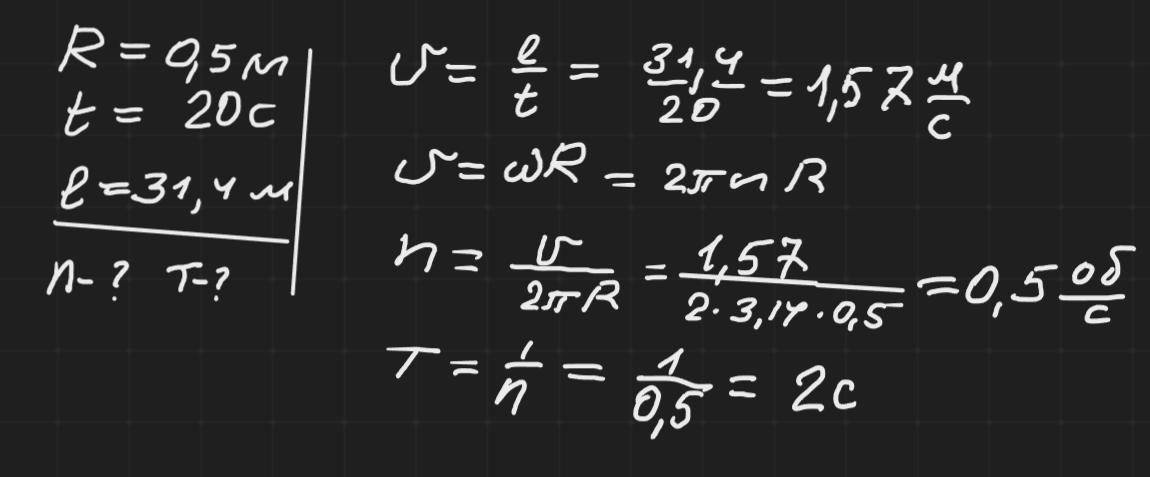 R = 0,5 м
t = 20 с
ℓ = 31,4 м
n - ? T - ?
υ = ℓ/t = 31,4/20 = 1,57 м/с
υ = ωR = 2πnR
n = υ/2πR = 1,57/2·3,14·0,5 = 0,5 об/с
T = 1/n = 1/0,5 = 2с